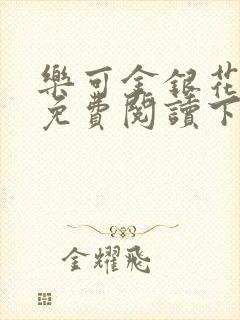 樂可金銀花
免費閱讀下
金耀飛